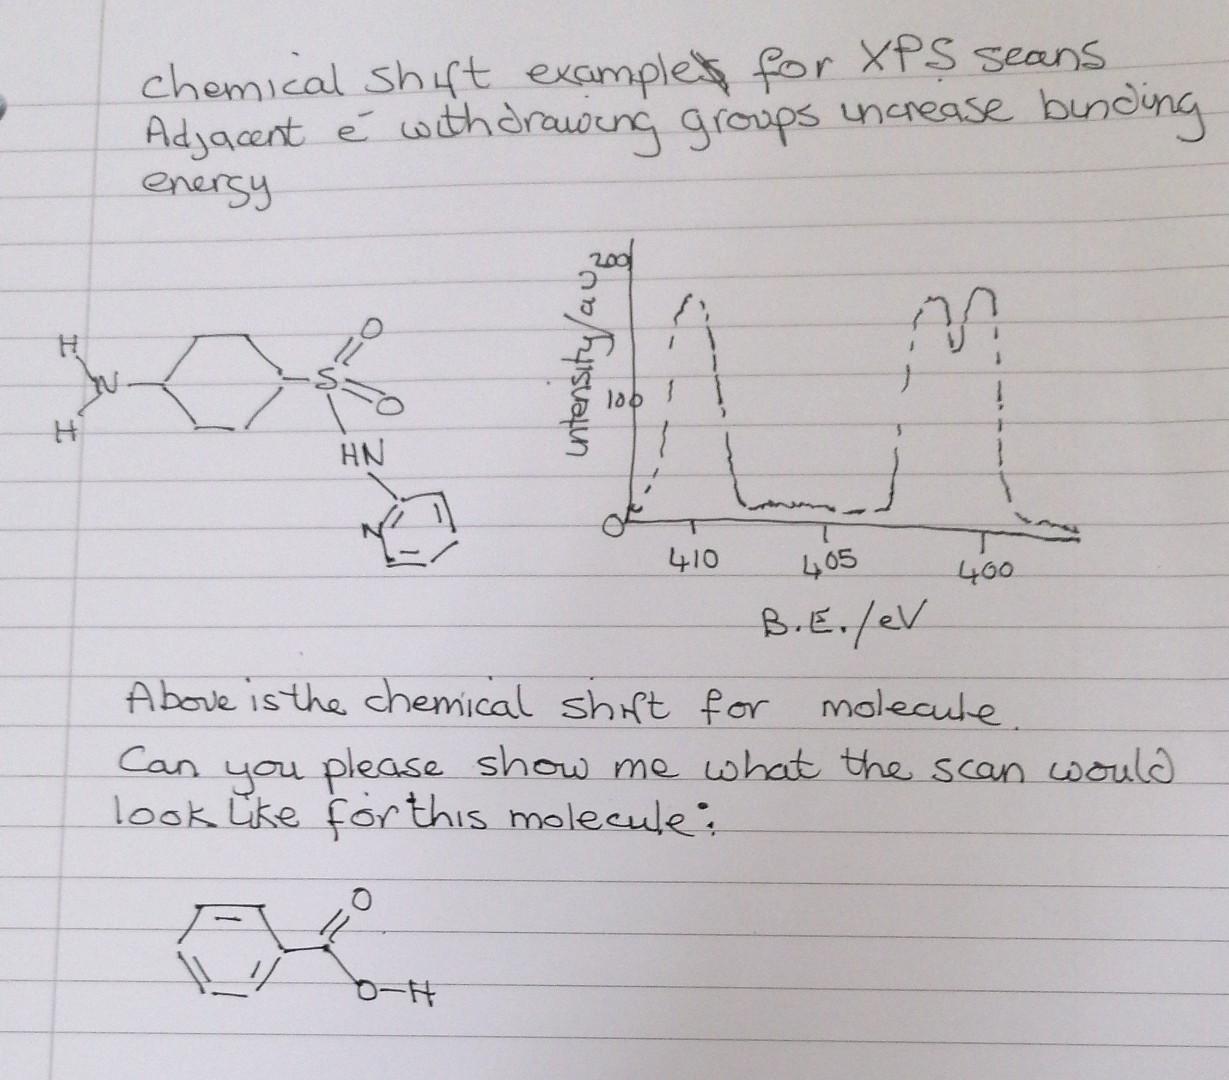 chemical shift example for XPS scans
Adjacent e⁻ withdrawing groups increase binding
energy
H
N
H
S
O
O
HN
N
intensity/au
200
100
0
410
405
400
B.E./eV
Above is the chemical shift for molecule.
Can you please show me what the scan would
look like for this molecule:
O
O-H